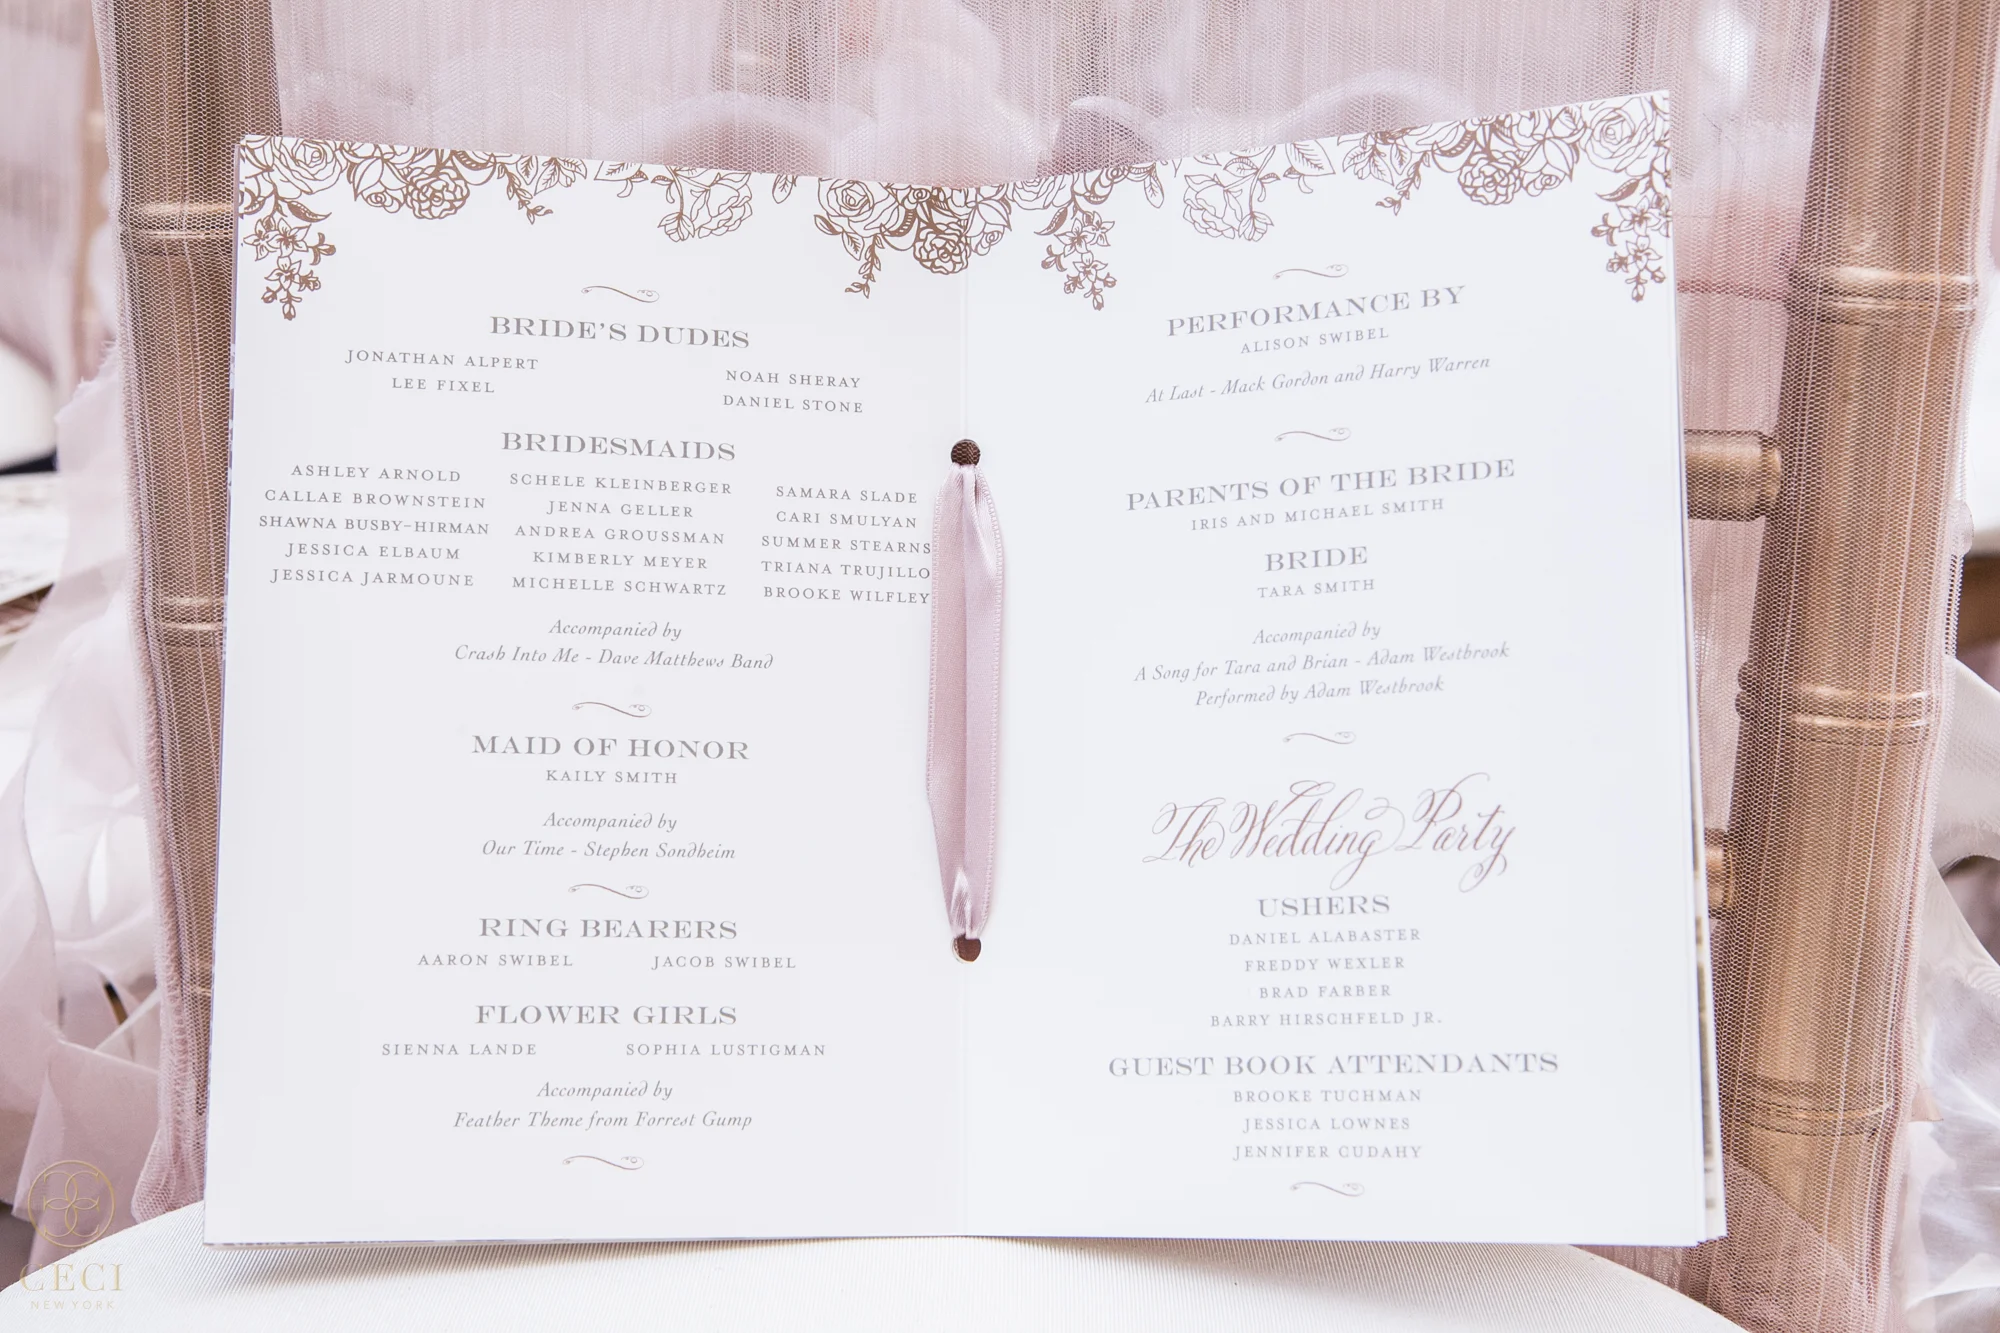 BRIDE'S DUDES
JONATHAN ALPERT
LEE FIXEL
NOAH SHERAY
DANIEL STONE
BRIDESMAIDS
ASHLEY ARNOLD
CALLAE BROWNSTEIN
SHAWNA BUSBY-HIRMAN
JESSICA ELBAUM
JESSICA JARMOUNE
SCHELE KLEINBERGER
JENNA GELLER
ANDREA GROUSSMAN
KIMBERLY MEYER
MICHELLE SCHWARTZ
SAMARA SLADE
CARI SMULYAN
SUMMER STEARNS
TRIANA TRUJILLO
BROOKE WILFLEY
Accompanied by
Crash Into Me - Dave Matthews Band
MAID OF HONOR
KAILY SMITH
Accompanied by
Our Time - Stephen Sondheim
RING BEARERS
AARON SWIBEL JACOB SWIBEL
FLOWER GIRLS
SIENNA LANDE SOPHIA LUSTIGMAN
Accompanied by
Feather Theme from Forrest Gump
PERFORMANCE BY
ALISON SWIBEL
At Last - Mack Gordon and Harry Warren
PARENTS OF THE BRIDE
IRIS AND MICHAEL SMITH
BRIDE
TARA SMITH
Accompanied by
A Song for Tara and Brian - Adam Westbrook
Performed by Adam Westbrook
The Wedding Party
USHERS
DANIEL ALABASTER
FREDDY WEXLER
BRAD FARBER
BARRY HIRSCHFELD JR.
GUEST BOOK ATTENDANTS
BROOKE TUCHMAN
JESSICA LOWNES
JENNIFER CUDAHY
CECI
NEW YORK